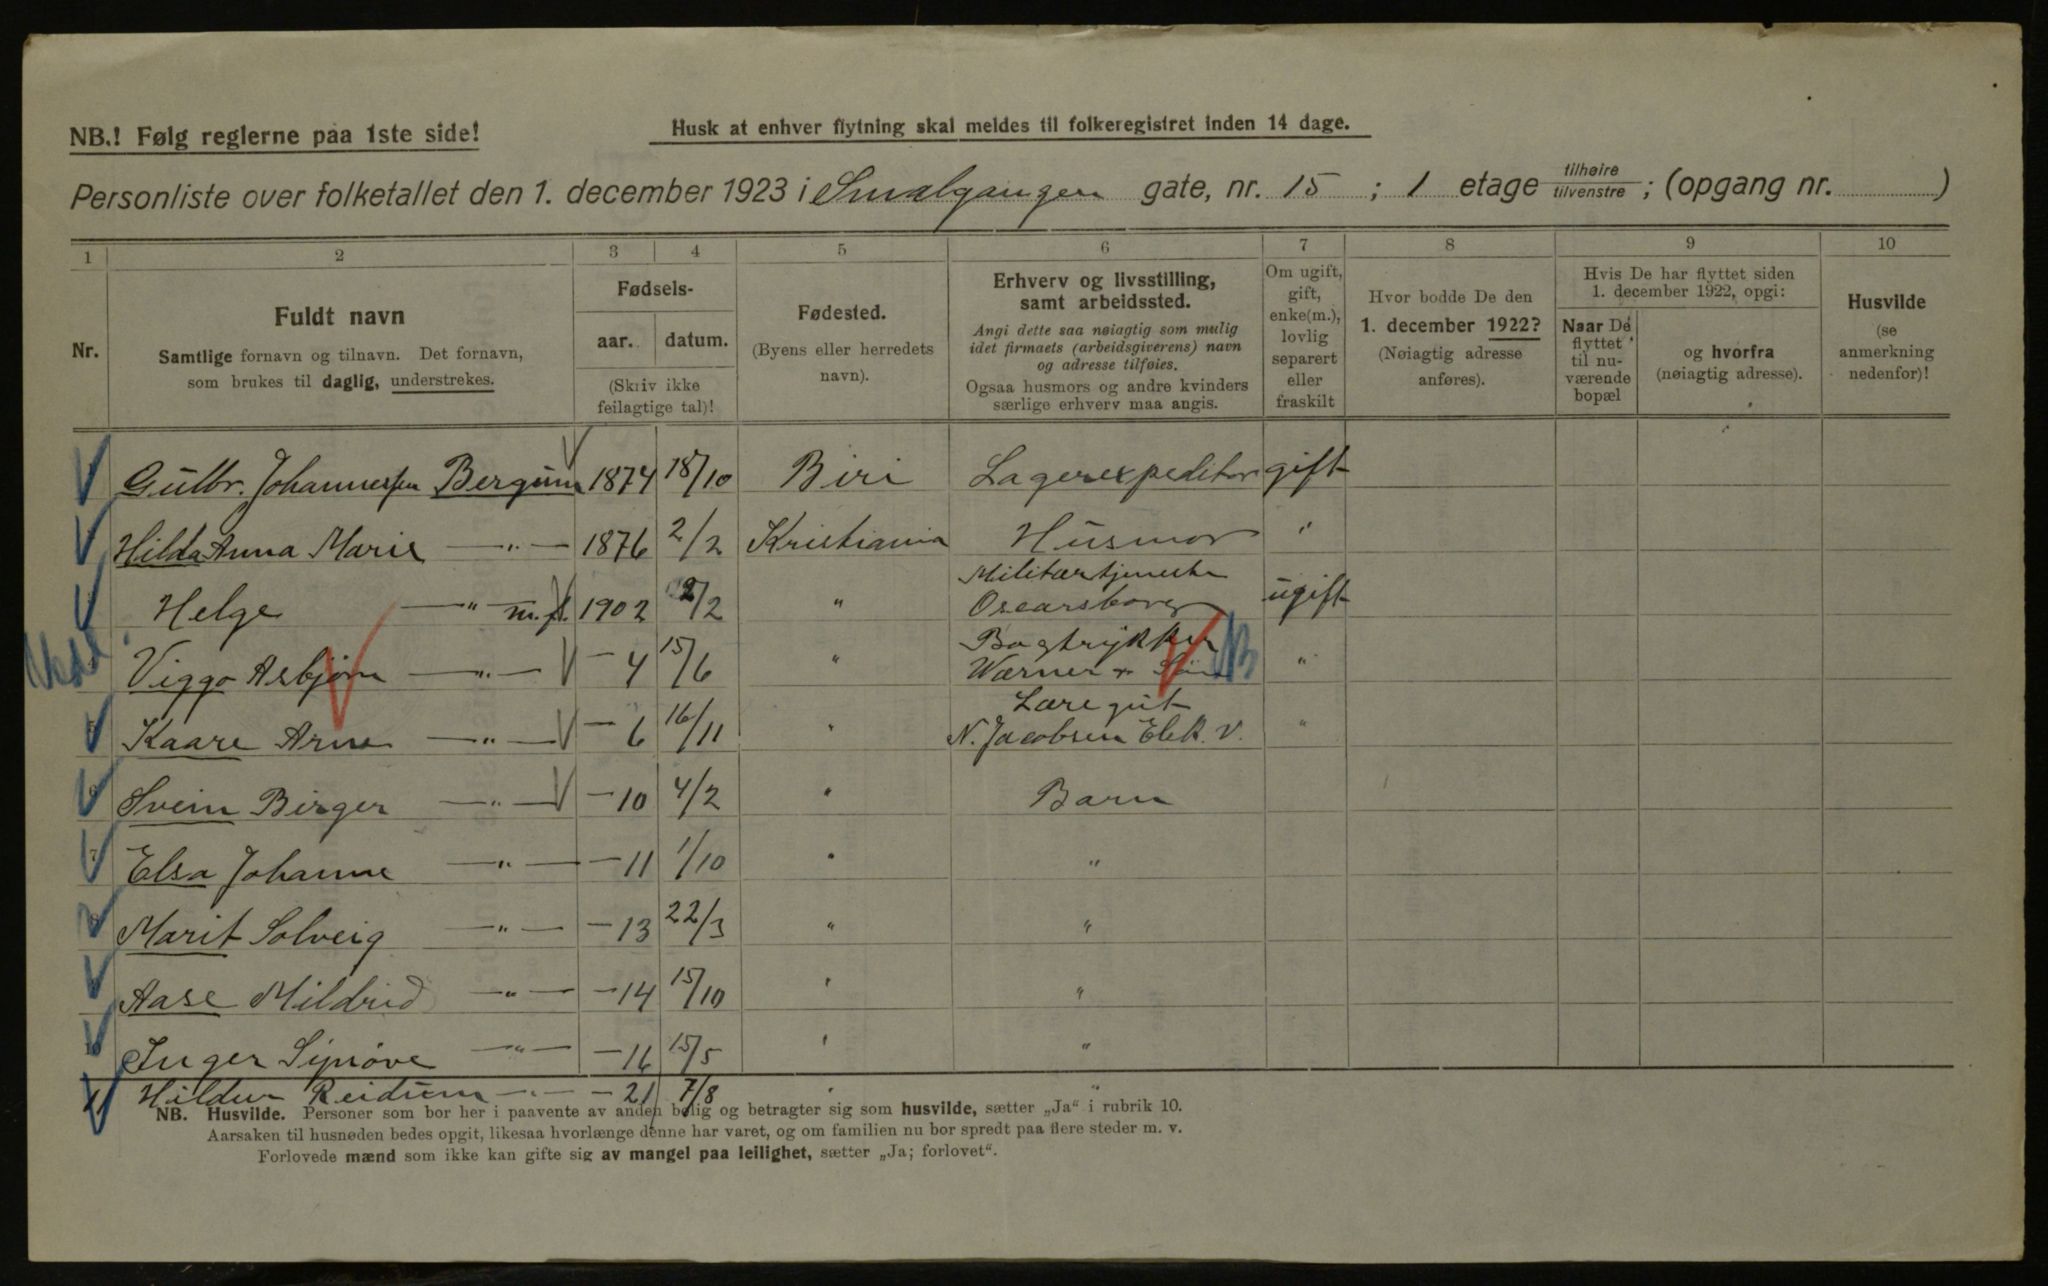 NB.! Følg reglerne paa 1ste side!
Husk at enhver flytning skal meldes til folkeregistret inden 14 dage.
Personliste over folketallet den 1. december 1923 i Smalgangen gate, nr. 15 ; 1 etage tilhøire tilvenstre ; (opgang nr. )
1 2 3 4 5 6 7 8 9 10
Nr.
Fuldt navn
Samtlige fornavn og tilnavn. Det fornavn,
som brukes til daglig, understrekes.
Fødsels-
aar. datum.
(Skriv ikke
feilagtige tal)!
Fødested.
(Byens eller herredets
navn).
Erhverv og livsstilling,
samt arbeidssted.
Angi dette saa nøiagtig som mulig
idet firmaets (arbeidsgiverens) navn
og adresse tilføies.
Ogsaa husmors og andre kvinders
særlige erhverv maa angis.
Om ugift,
gift,
enke(m.),
lovlig
separert
eller
fraskilt
Hvor bodde De den
1. december 1922?
(Nøiagtig adresse
anføres).
Hvis De har flyttet siden
1. december 1922, opgi:
Naar De
flyttet
til nu-
værende
bopæl
og hvorfra
(nøiagtig adresse).
Husvilde
(se
anmerkning
nedenfor)!
Gulbr. Johannessen Bergum 1874 18/10 Biri Lagerexpeditør gift
Hilda Anna Marie —"— 1876 2/2 Kristiania Husmor "
Militærtjeneste
Helge —"— m.f. 1902 2/2 " Oscarsborg ugift
Bogtrykker B
Viggo Asbjørn —"— — 4 15/6 " Werner & Søn "
Læregut
5 Kaare Arne —"— — 6 16/11 " N. Jacobsen Elek. V. "
6 Svein Birger —"— — 10 4/2 " Barn
7 Elsa Johanne —"— — 11 1/10 " "
Marit Solveig —"— — 13 22/3 " "
Aase Mildrid —"— — 14 15/10 " "
10 Inger Synøve —"— — 16 15/5 " "
11 Hildur Reidun —"— — 21 7/8 " "
NB. Husvilde. Personer som bor her i paavente av anden bolig og betragter sig som husvilde, sætter „Ja“ i rubrik 10.
Aarsaken til husnøden bedes opgit, likesaa hvorlænge denne har varet, og om familien nu bor spredt paa flere steder m. v.
Forlovede mænd som ikke kan gifte sig av mangel paa leilighet, sætter „Ja; forlovet“.